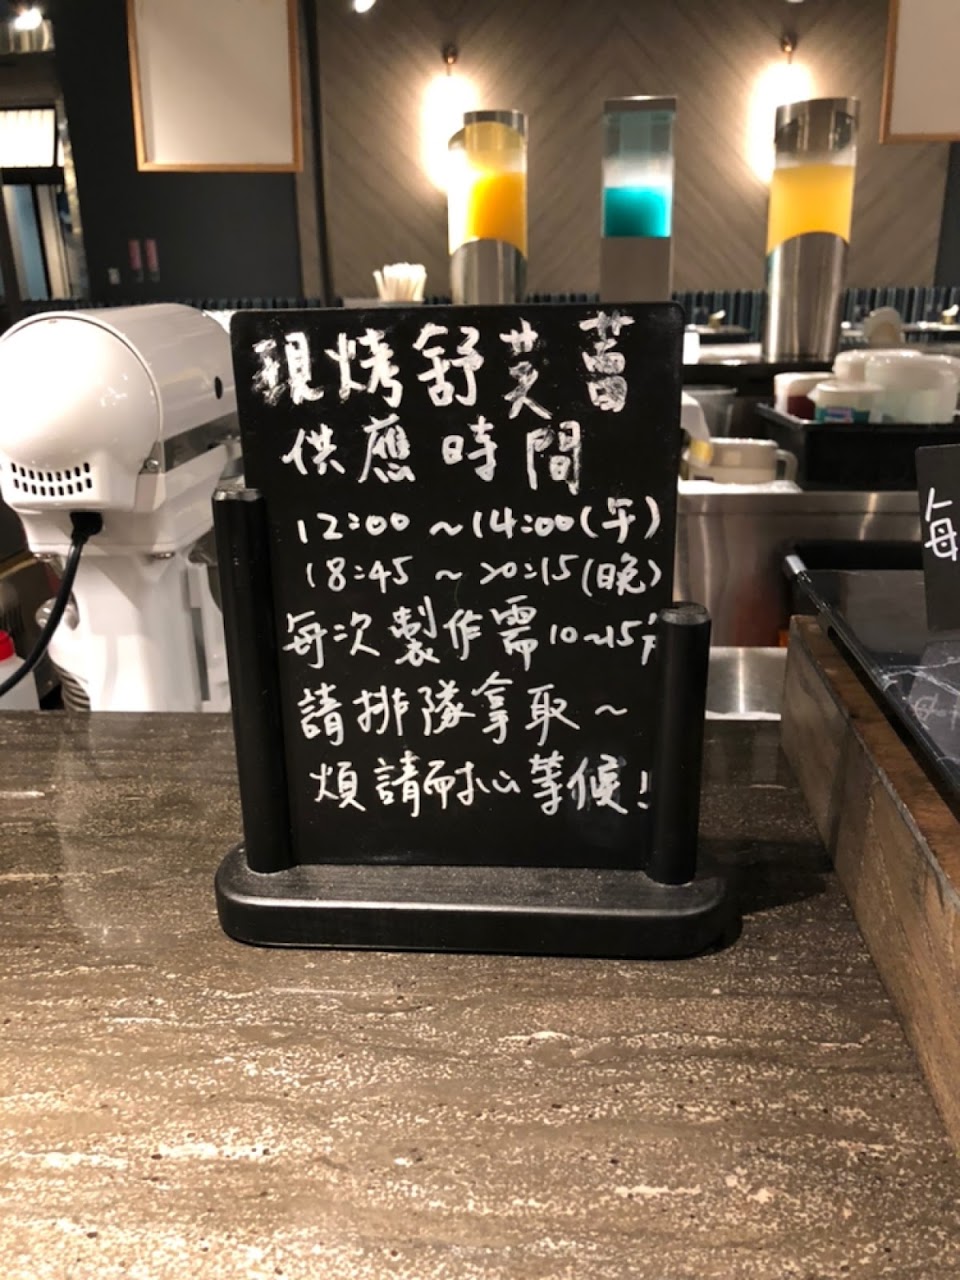 現烤舒芙蕾
供應時間
12:00 ~ 14:00 (午)
18:45 ~ 20:15 (晚)
每次製作需10~15分
請排隊拿取~
煩請耐心等候!
每